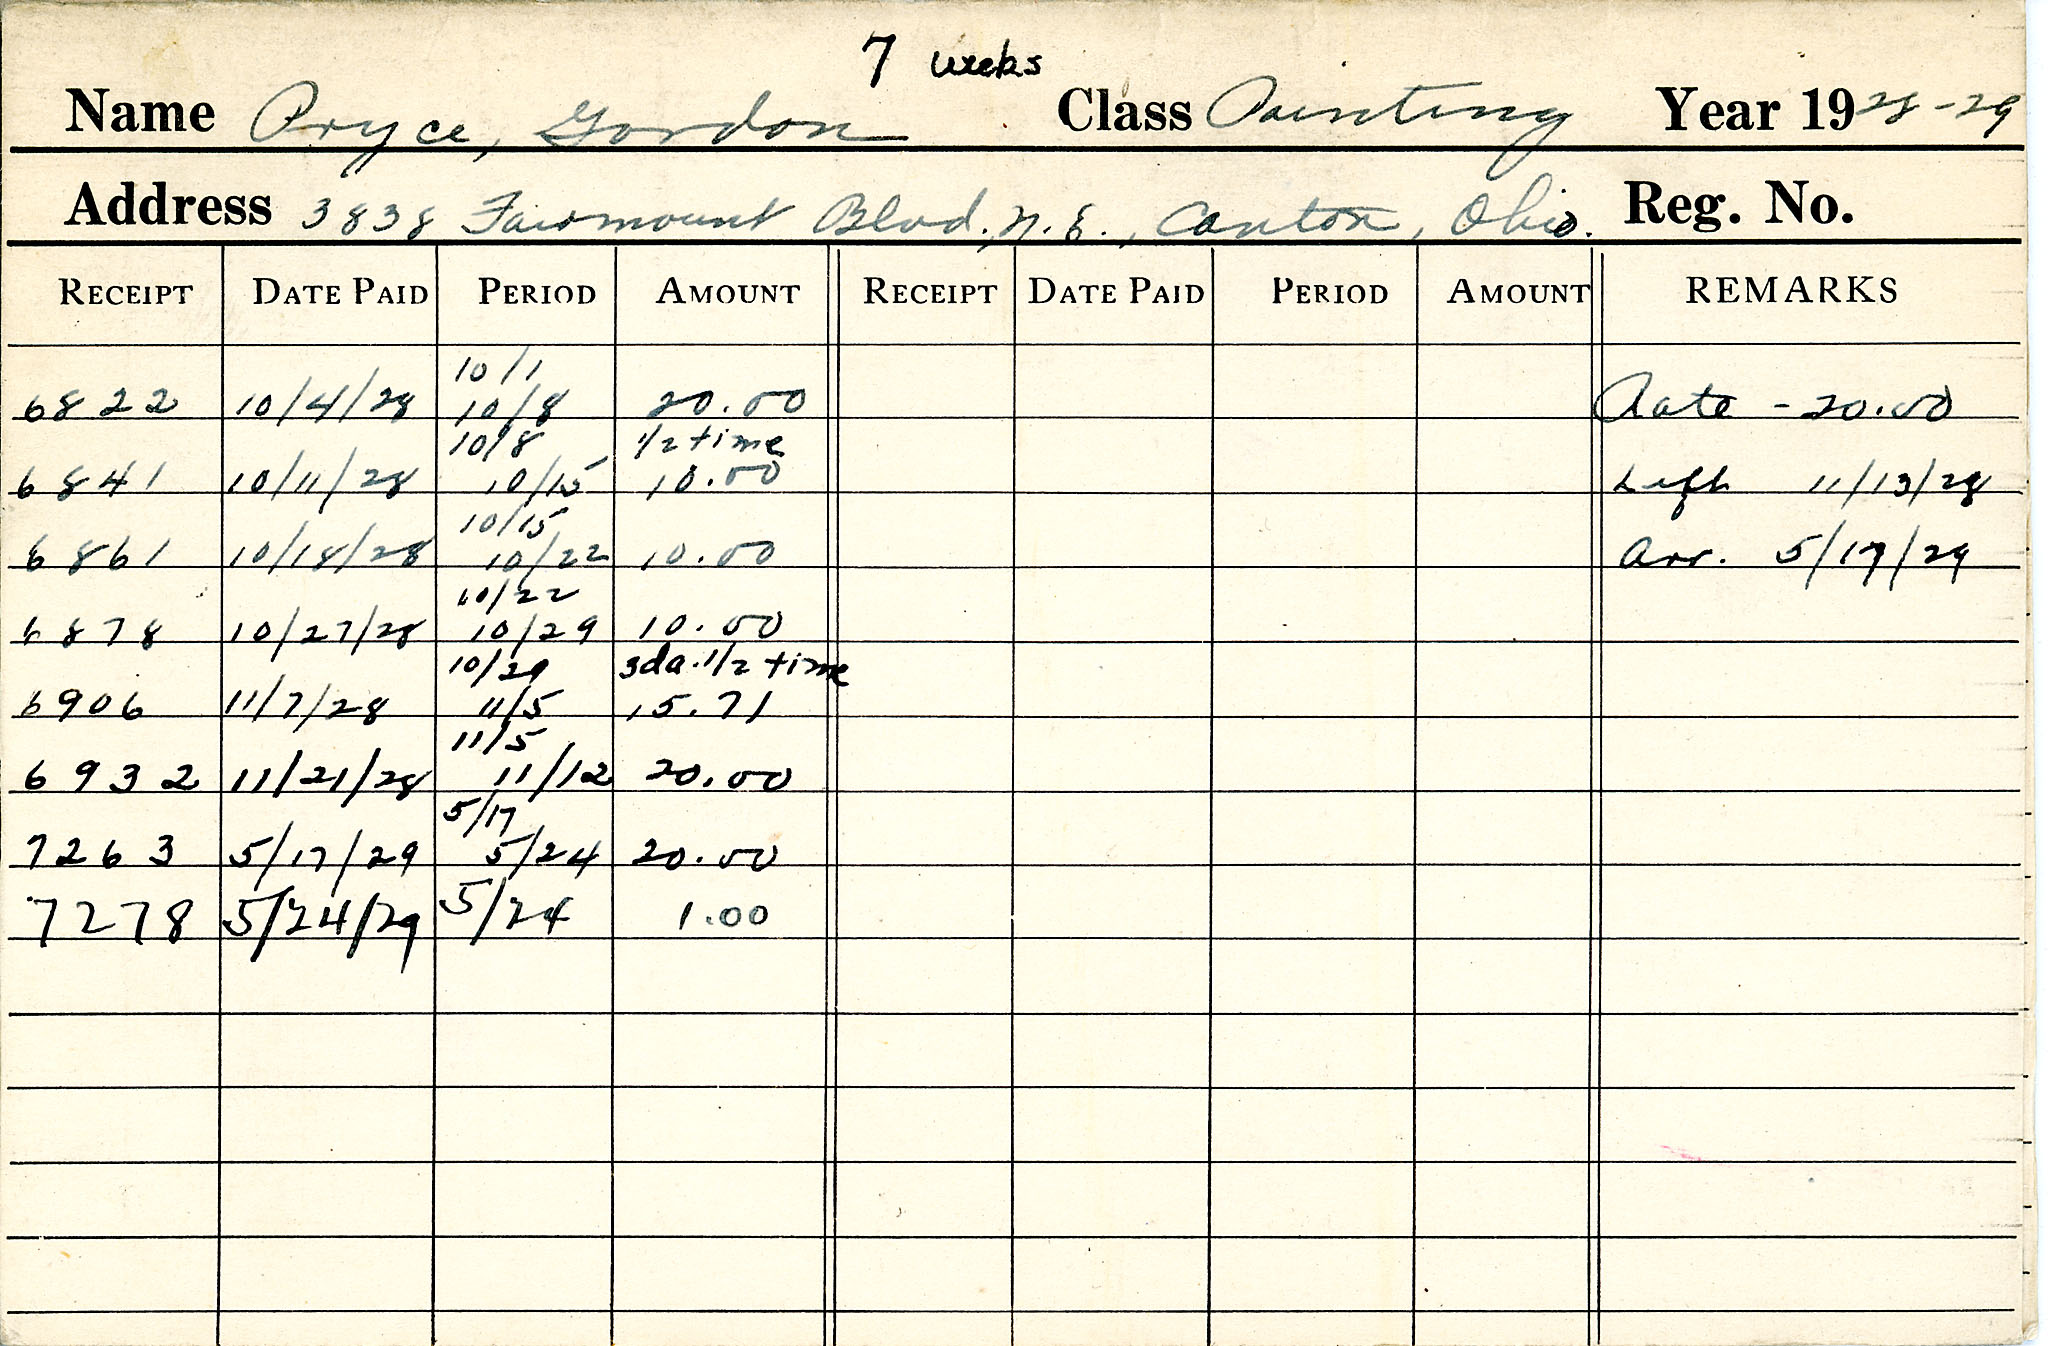 7 weeks
Name Pryce, Gordon Class Painting Year 1928-29
Address 3838 Fairmount Blvd., N.E., Canton, Ohio. Reg. No.
RECEIPT DATE PAID PERIOD AMOUNT RECEIPT DATE PAID PERIOD AMOUNT REMARKS
10/1
6822 10/4/28 10/8 20.00 Rate - 20.00
10/8 1/2 time
6841 10/11/28 10/15 10.00 Left 11/13/28
10/15
6861 10/18/28 10/22 10.00 Arr. 5/17/29
10/22
6878 10/27/28 10/29 10.00
10/29 3da. 1/2 time
6906 11/7/28 11/5 15.71
11/5
6932 11/21/28 11/12 20.00
5/17
7263 5/17/29 5/24 20.00
7278 5/24/29 5/24 1.00